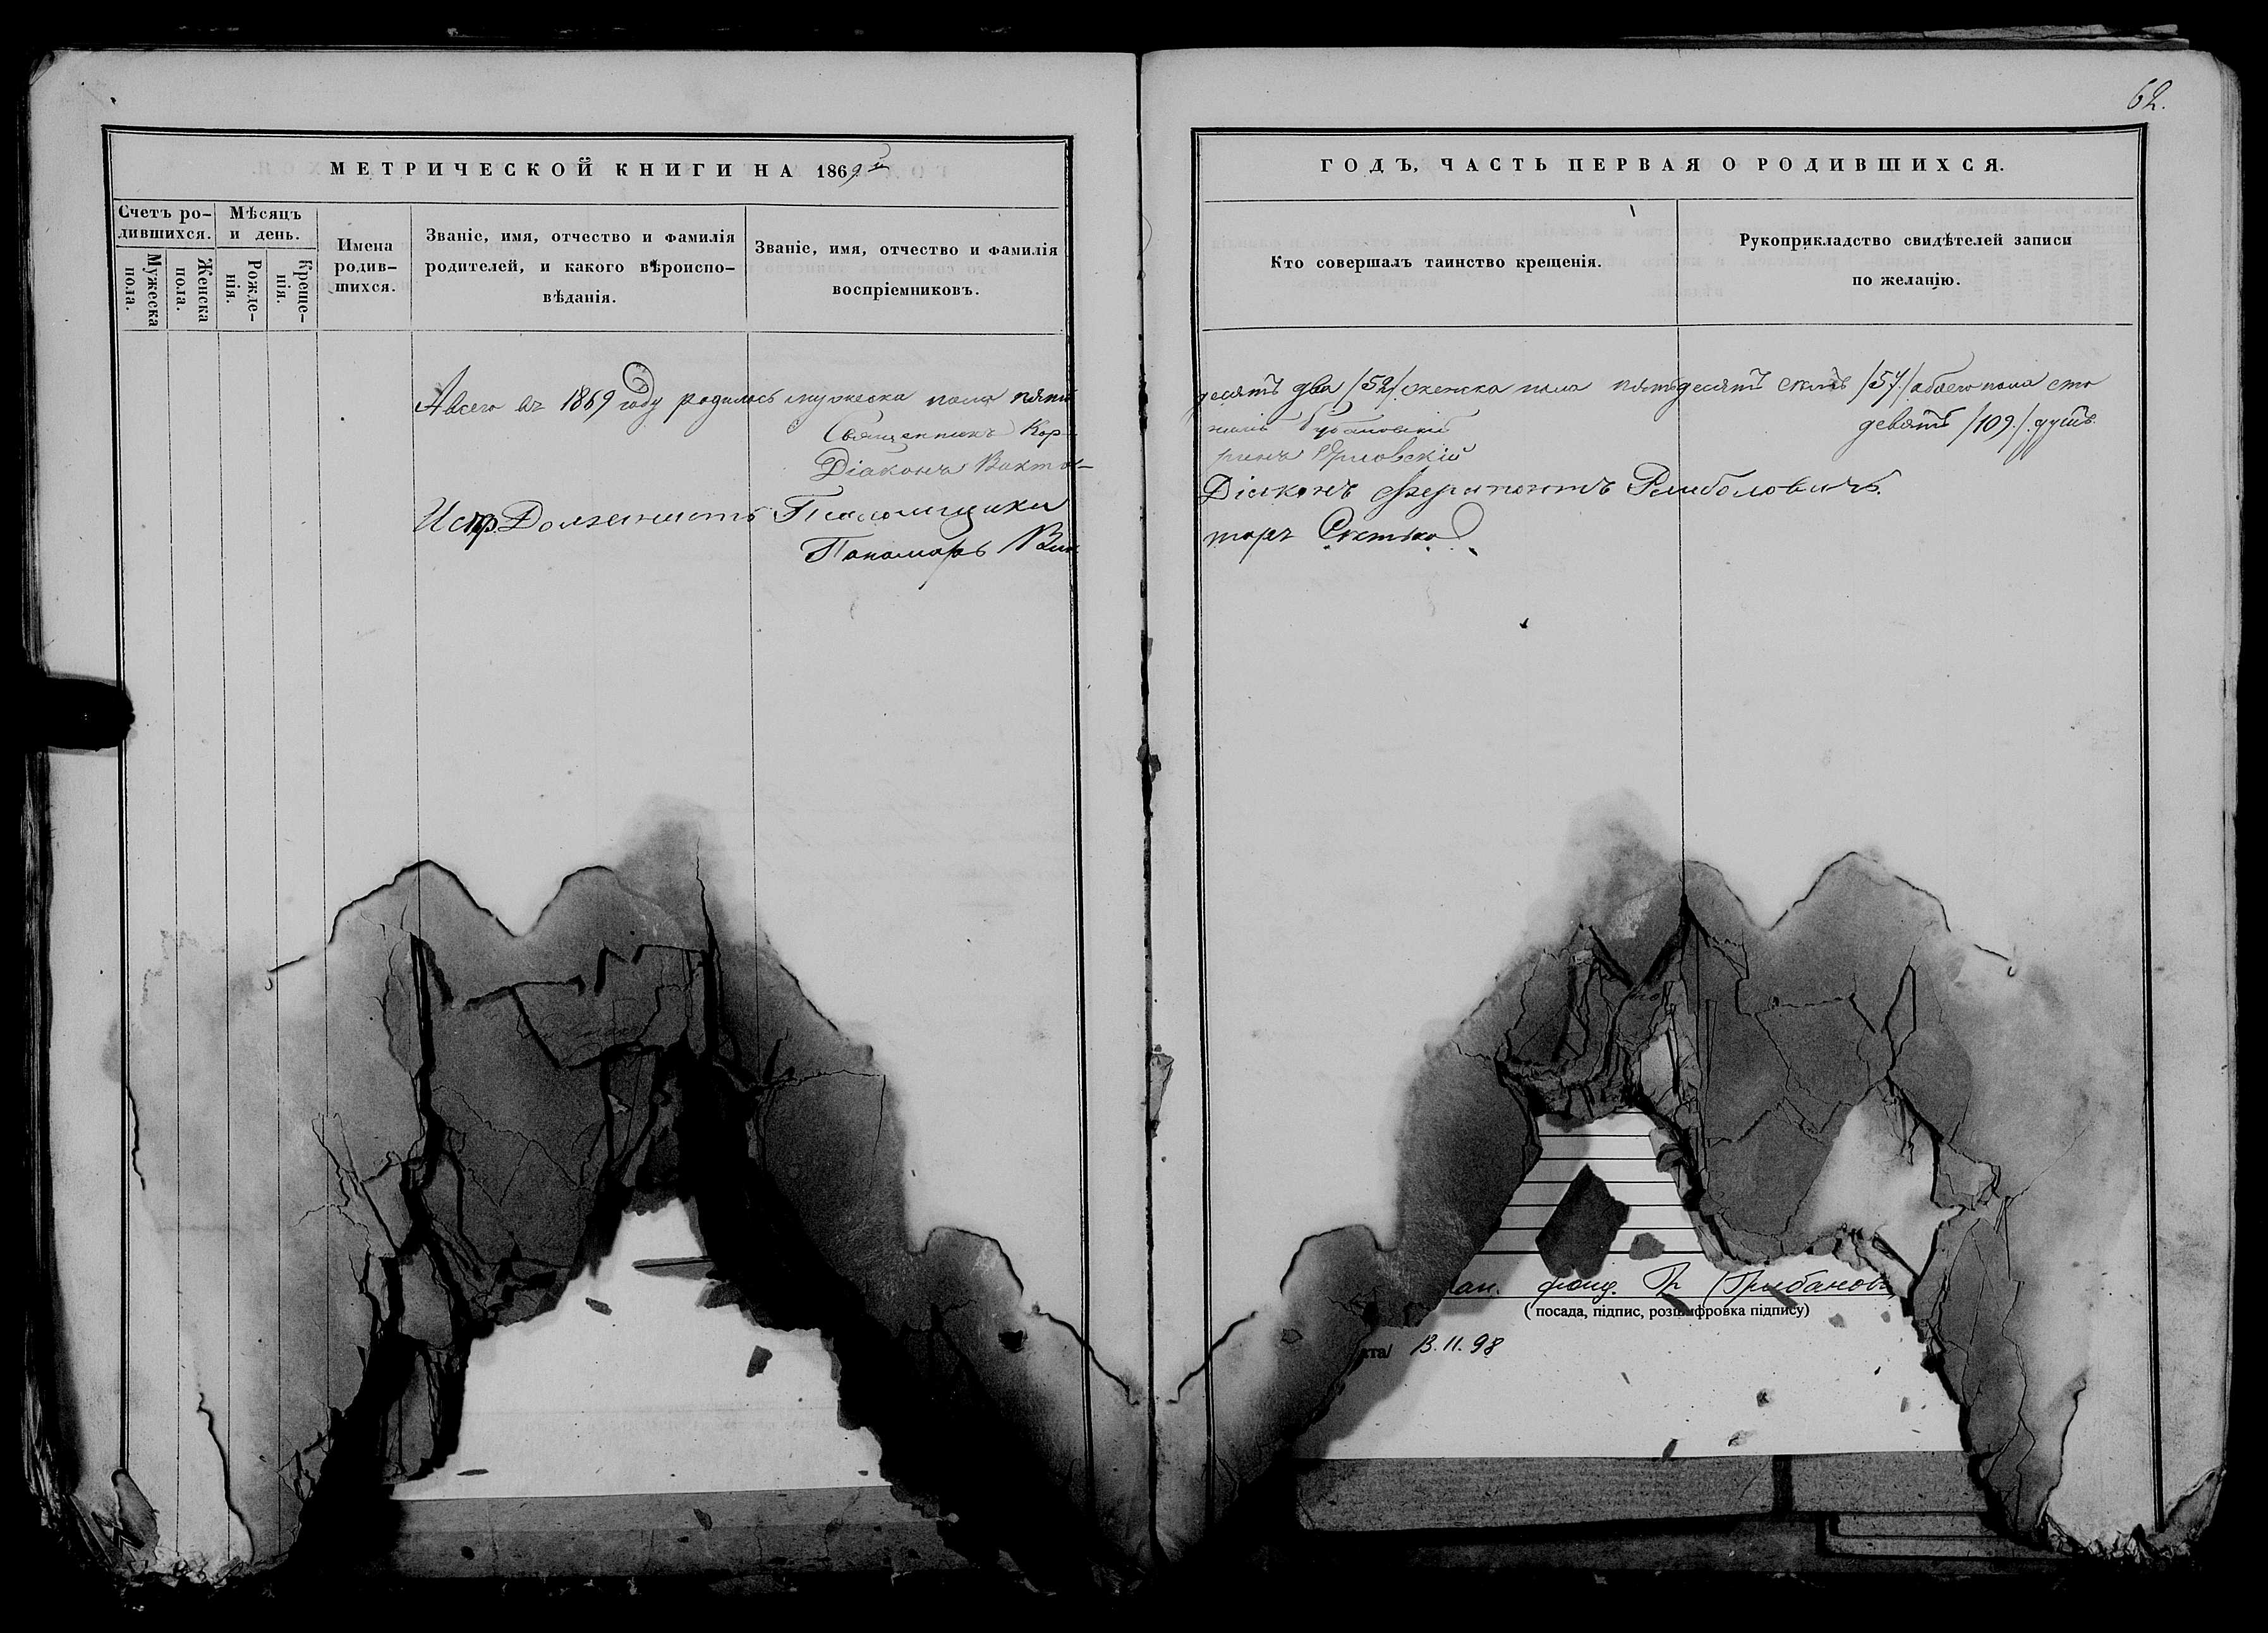 62.
МЕТРИЧЕСКОЙ КНИГИ НА 1869й
ГОДЪ, ЧАСТЬ ПЕРВАЯ О РОДИВШИХСЯ.
Счетъ ро-
дившихся.
Мужеска
пола.
Женска
пола.
Мѣсяцъ
и день.
Рожде-
нія.
Креще-
нія.
Имена
родив-
шихся.
Званіе, имя, отчество и фамилія
родителей, и какого вѣроиспо-
вѣданія.
Званіе, имя, отчество и фамилія
воспріемниковъ.
Кто совершалъ таинство крещенія.
Рукоприкладство свидѣтелей записи
по желанію.
А всего въ 1869 году родилось мужеска пола пять
десятъ два /52/ женска пола пятьдесятъ семь /57/ обоего пола сто
девять /109/ душъ.
Священникъ Кор-
Діаконъ Викто-
ринъ Орловскій
Испр. Должность Псаломщика
Діаконъ
Пономарь Вик
торъ
фонд.
(посада, підпис, розшифровка підпису)
ата/ 13.11.98